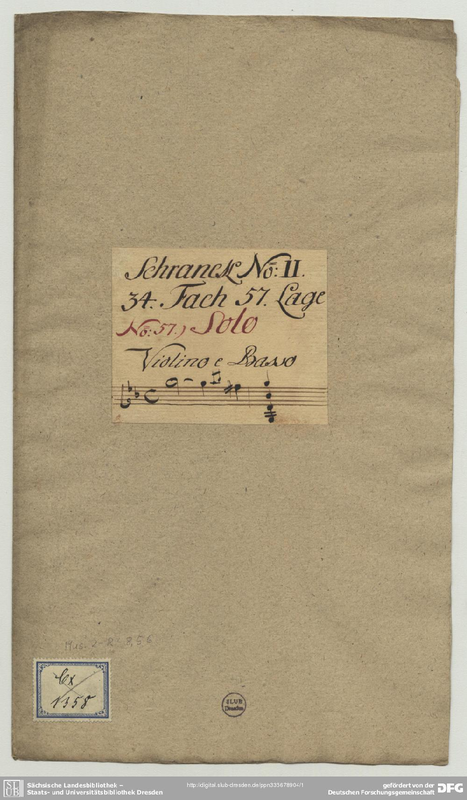 Schranck No: II.
34. Fach 57. Lage
No: 57.) Solo
Violino e Basso
Mus. 2-R-8,56
Cx
1358
SLUB
Dresden
Sächsische Landesbibliothek –
Staats- und Universitätsbibliothek Dresden
http://digital.slub-dresden.de/ppn33567890X/1
gefördert von der
Deutschen Forschungsgemeinschaft
DFG